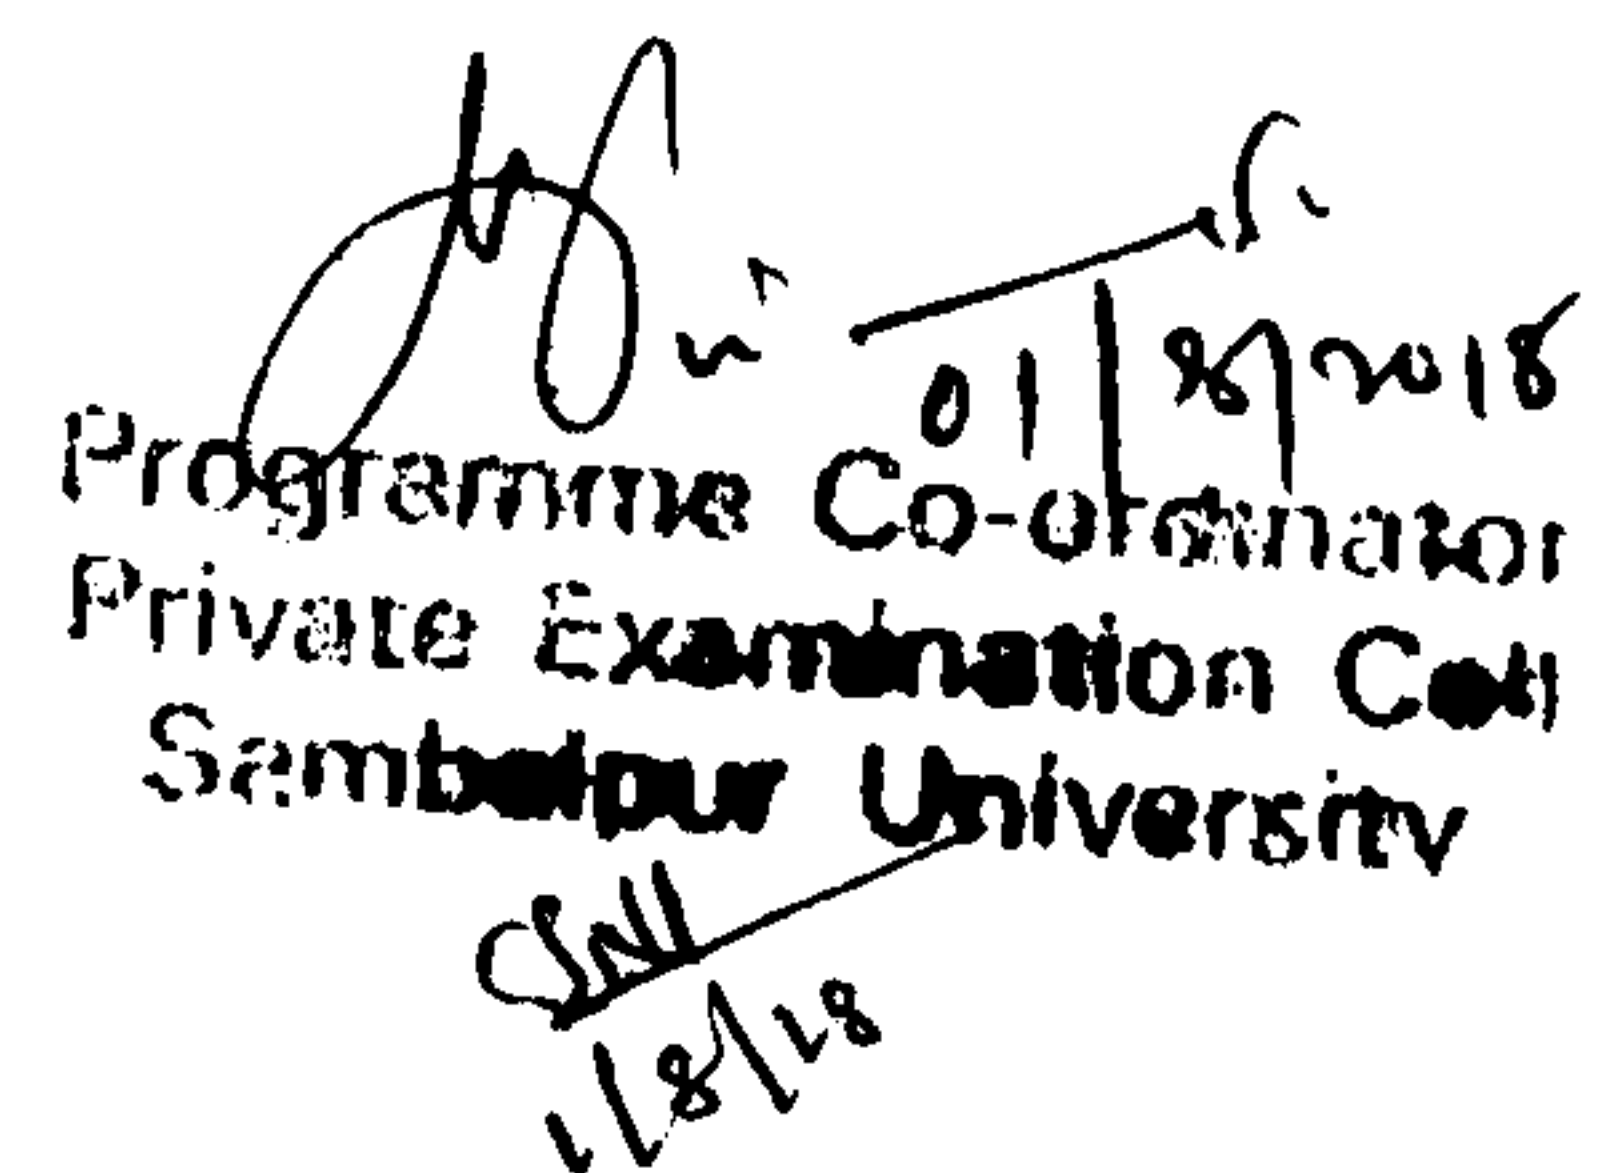 01/8/2018
Programme Co-ordinator
Private Examination Cell
Sambalpur University
1/8/18